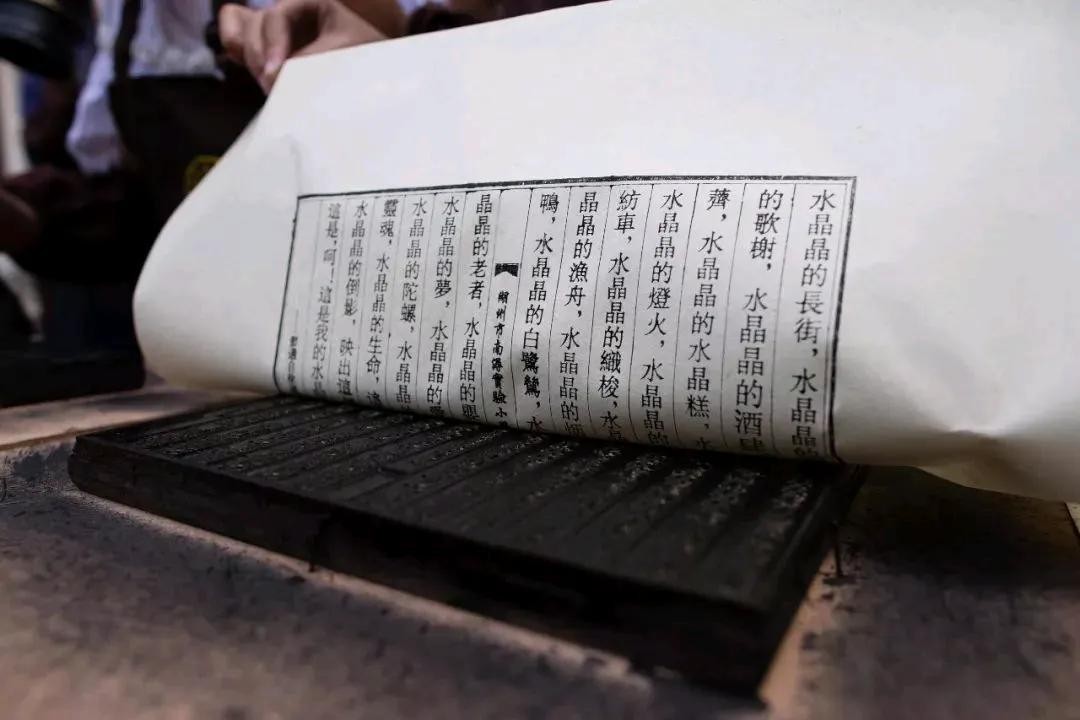 水晶晶的長街，水晶晶的
的歌榭，水晶晶的酒肆
薺，水晶晶的水晶糕，水
水晶晶的燈火，水晶晶的
紡車，水晶晶的織梭，水晶
晶晶的漁舟，水晶晶的
鴨，水晶晶的白鷺鷥，水
湖州市南潯實驗小
晶晶的老者，水晶晶的
水晶晶的夢，水晶晶的
水晶晶的陀螺，水晶晶
靈魂，水晶晶的生命，這
水晶晶的倒影，映出這
這是，呵！這是我的水晶